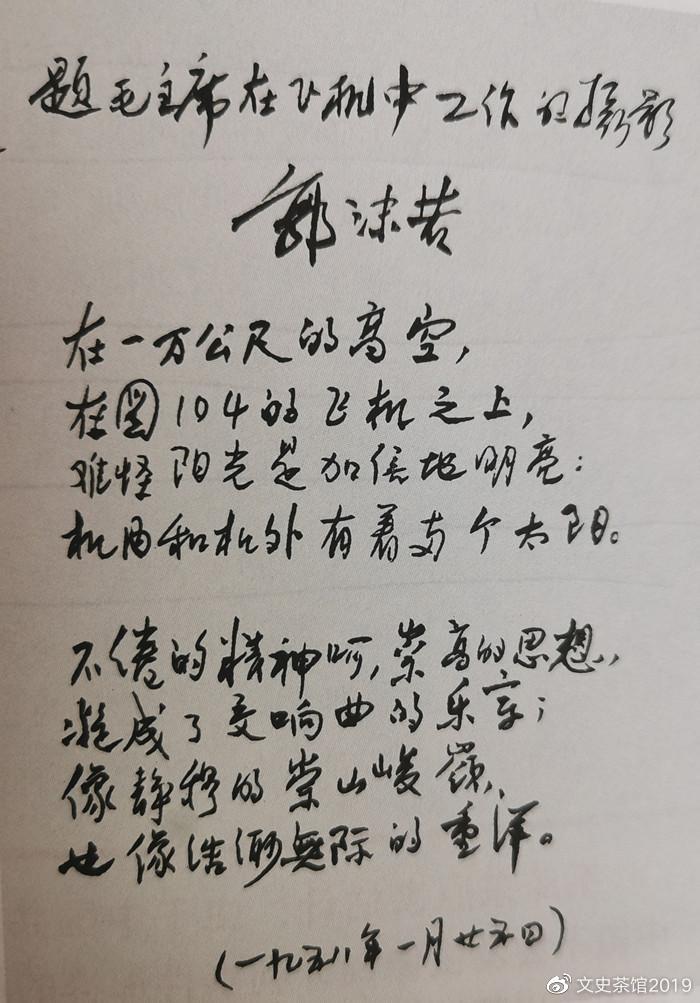 题毛主席在飞机中工作的摄影
郭沫若
在一万公尺的高空，
在图104的飞机之上，
难怪阳光是加倍地明亮：
机内和机外有着两个太阳。
不倦的精神呵，崇高的思想，
凝成了交响曲的乐章；
像静穆的崇山峻嶺，
也像浩渺無际的重洋。
（一九五八年一月廿五日）
文史茶馆2019